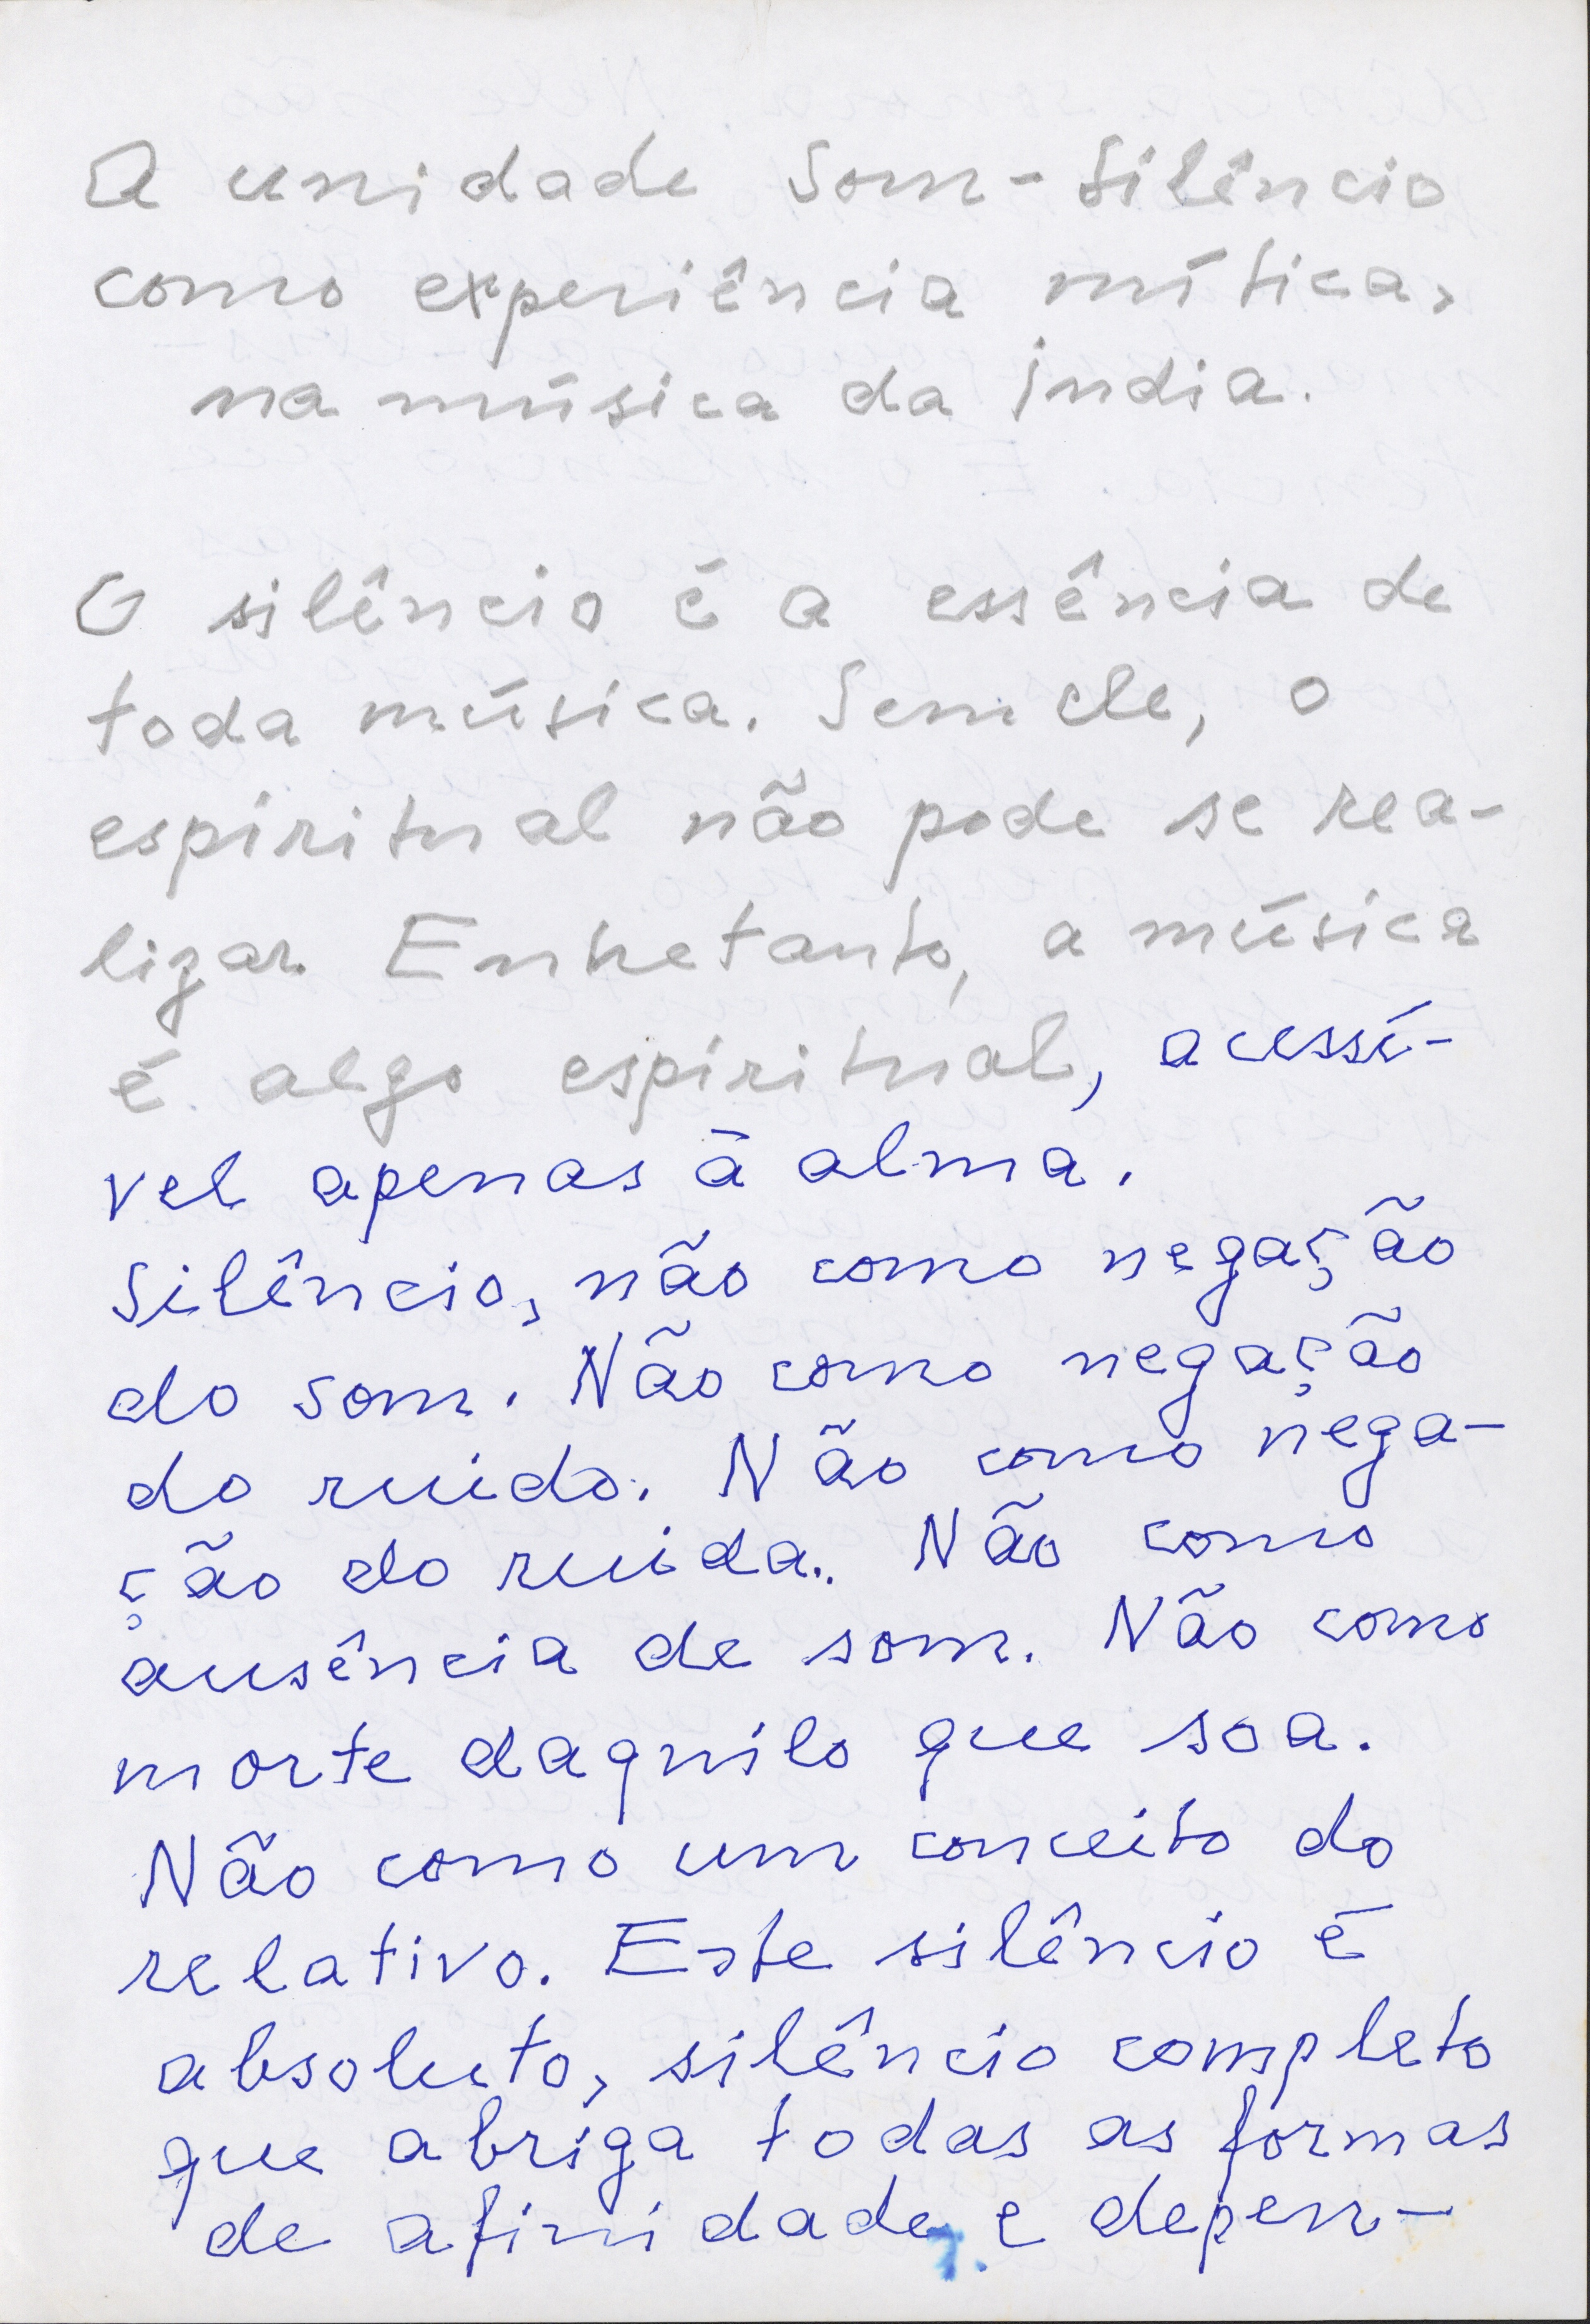 A unidade Som-Silêncio
como experiência mítica,
na música da índia.
O silêncio é a essência de
toda música. Sem ele, o
espiritual não pode se rea-
lizar. Entretanto, a música
é algo espiritual, acessí-
vel apenas à alma.
Silêncio, não como negação
do som. Não como negação
do ruido. Não como nega-
ção do ruida.. Não como
ausência de som. Não como
morte daquilo que soa.
Não como um conceito do
relativo. Este silêncio é
absoluto, silêncio completo
que abriga todas as formas
de afinidade e depen-
7.